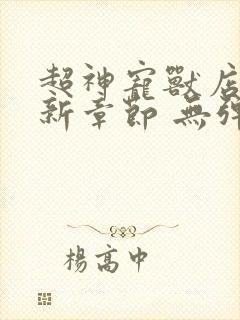 超神寵獸店
新章節 無彈
楊高中